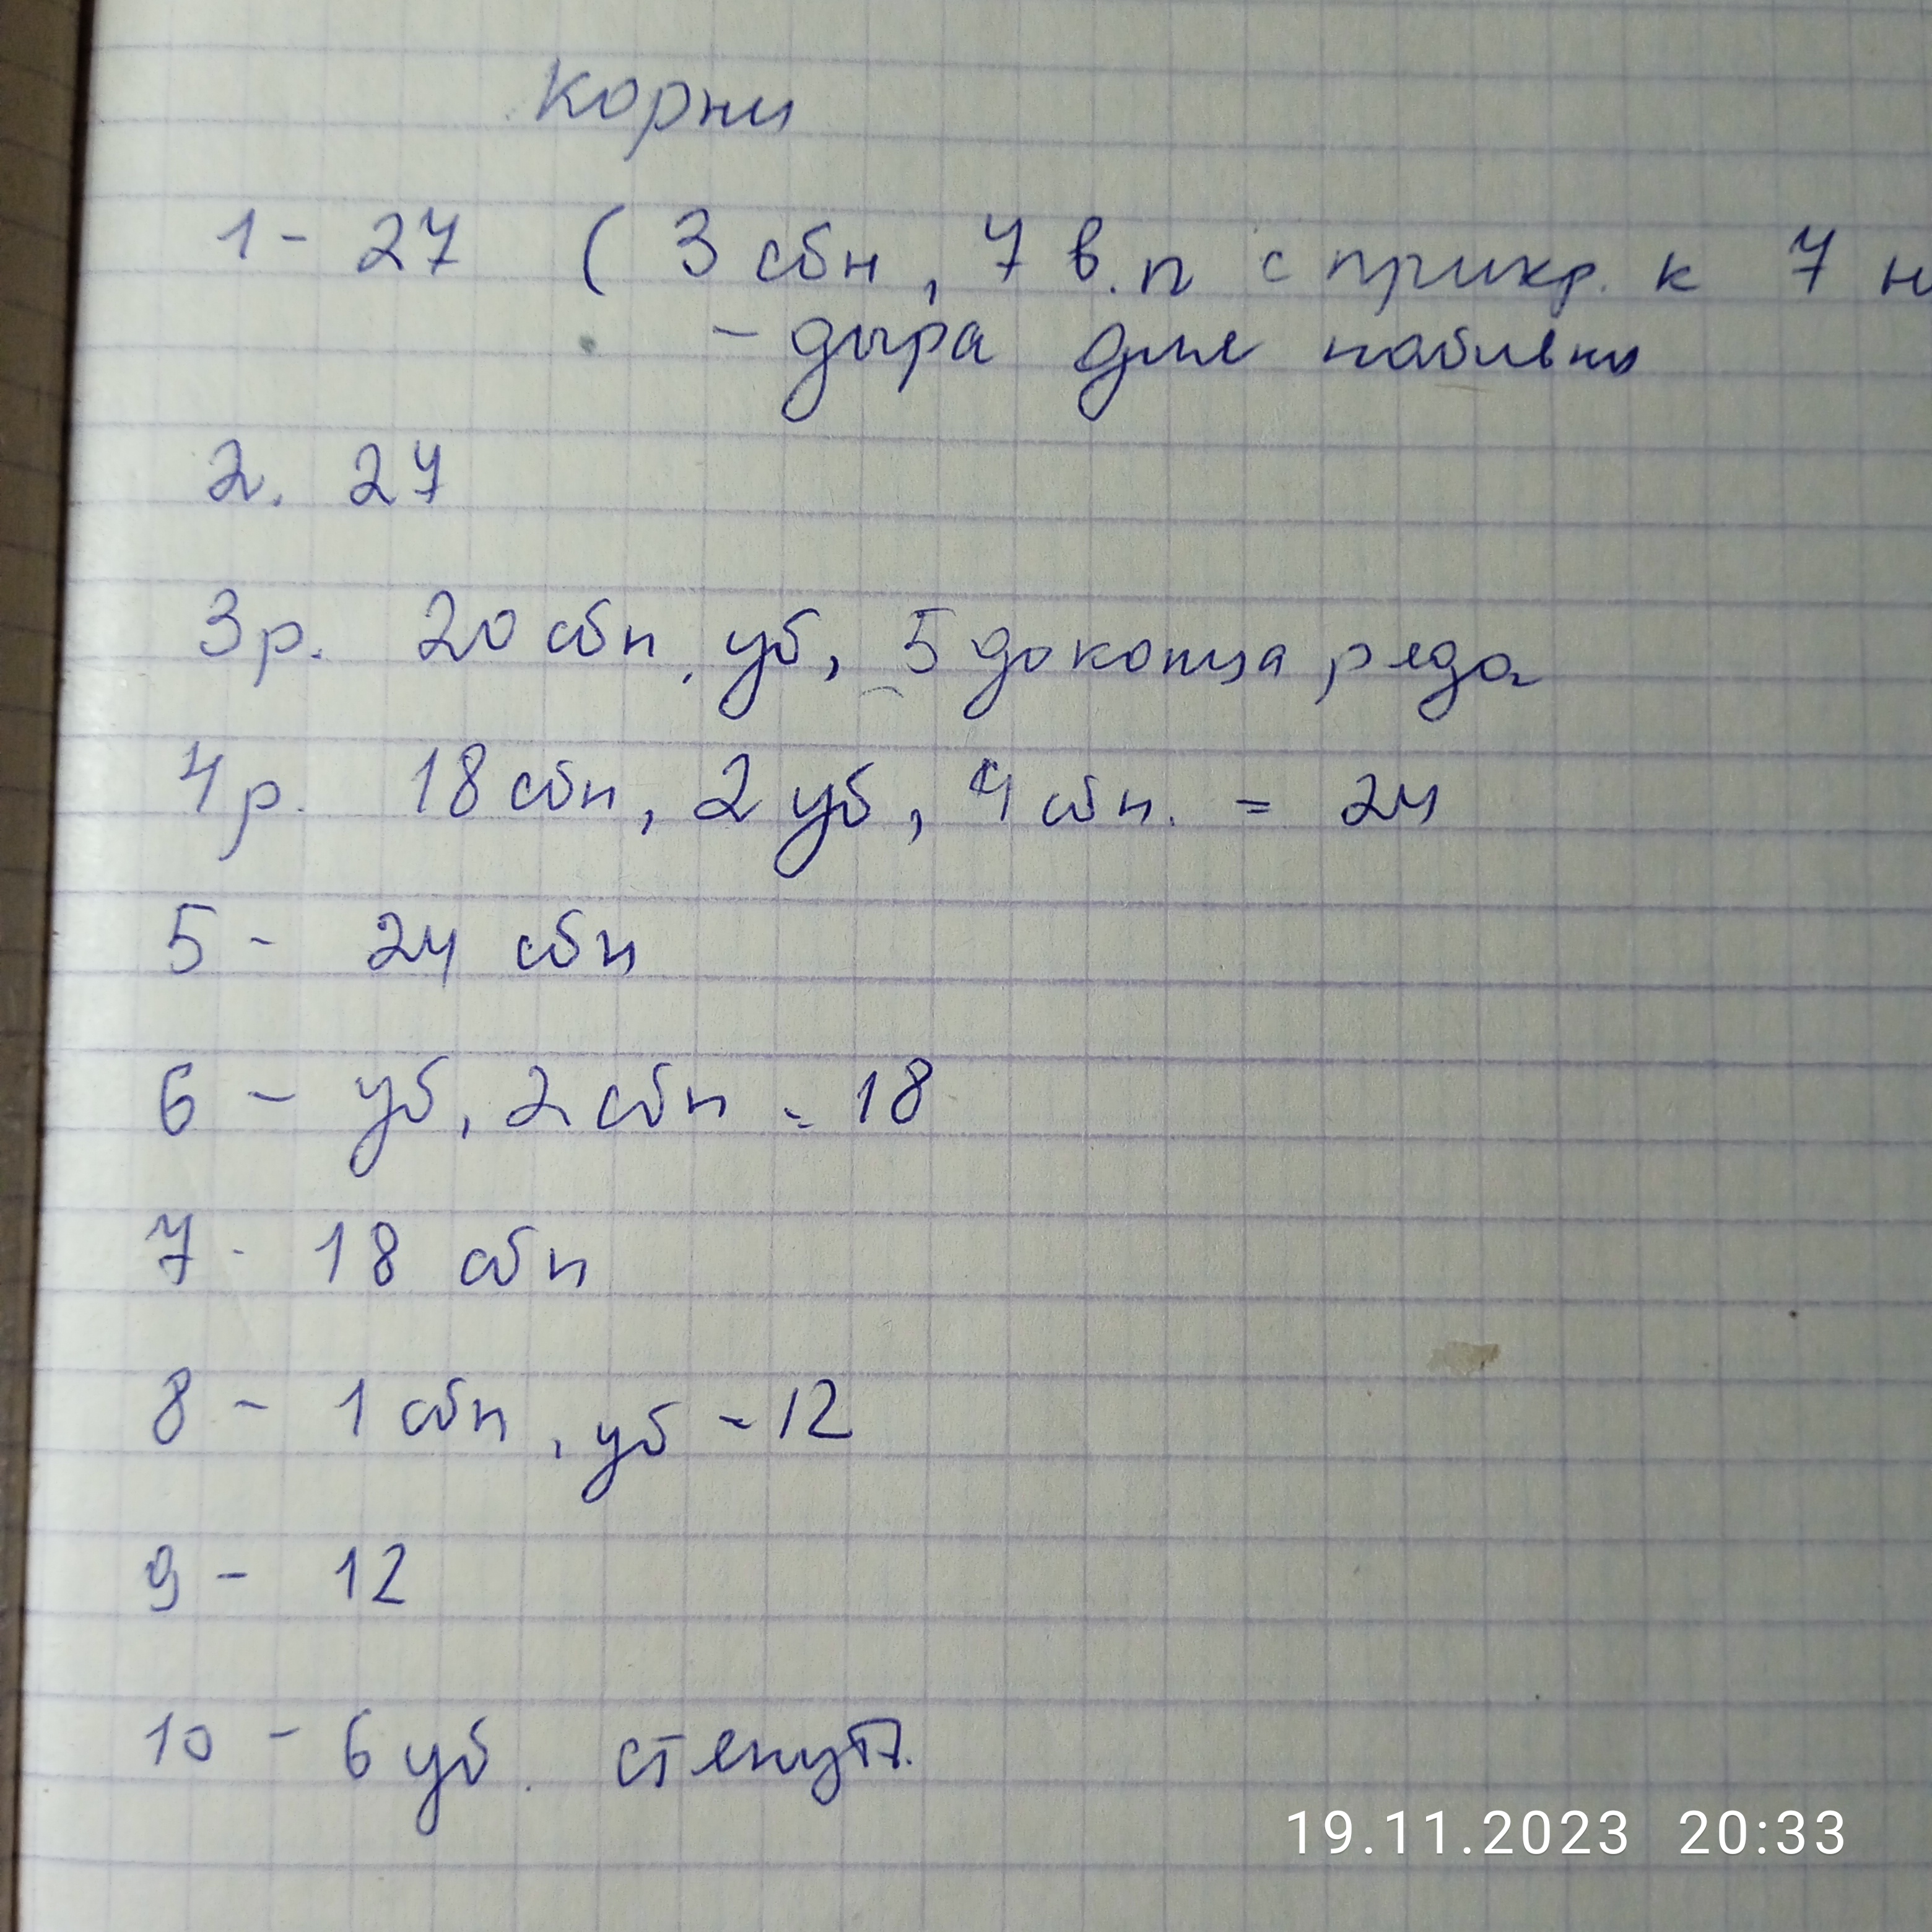 Корни
1 - 27 ( 3 сбн, 7 в.п с прикр. к 7 н
- дыра для набивки
2. 27
3р. 20 сбп, уб, 5 до конца ряда
4р. 18 сбп, 2 уб, 4 сбп. = 24
5 - 24 сбп
6 - уб, 2 сбп - 18
7 - 18 сбп
8 - 1 сбп, уб - 12
9 - 12
10 - 6 уб. стянуть.
19.11.2023 20:33